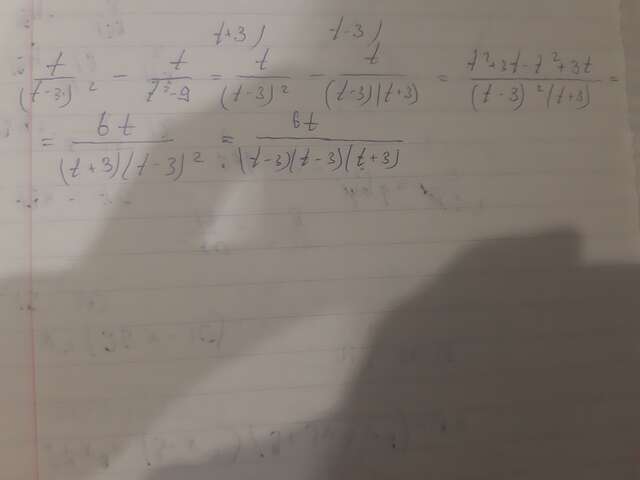 t+3) t-3)
t/(t-3)² - t/(t²-9) = t/(t-3)² - t/((t-3)(t+3)) = (t²+3t-t²+3t)/((t-3)²(t+3)) =
= 6t/((t+3)(t-3)²) = 6t/((t-3)(t-3)(t+3))